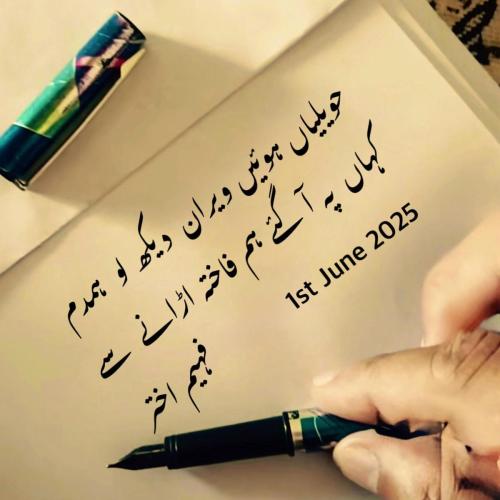 حویلیاں ہوئیں ویران دیکھ لو ہمدم
کہاں پہ آ گئے ہم فاختہ اڑانے سے
1st June 2025
فہیم اختر